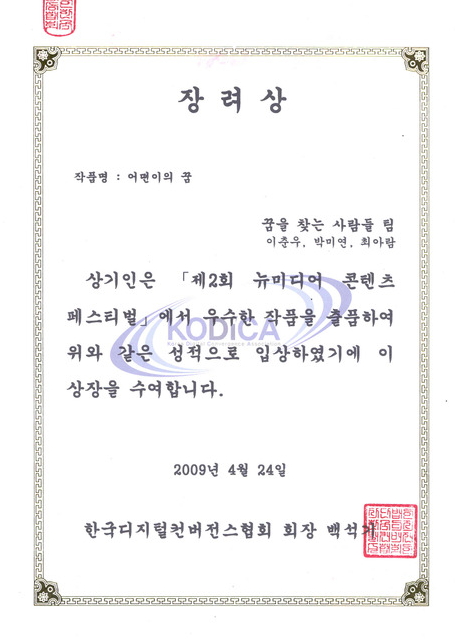 장려상
작품명 : 어떤이의 꿈
꿈을 찾는 사람들 팀
이춘우, 박미연, 최아람
상기인은 「제2회 뉴미디어 콘텐츠
페스티벌」에서 우수한 작품을 출품하여
위와 같은 성적으로 입상하였기에 이
상장을 수여합니다.
KODICA
Korea Digital Convergence Association
2009년 4월 24일
한국디지털컨버전스협회 회장 백석기